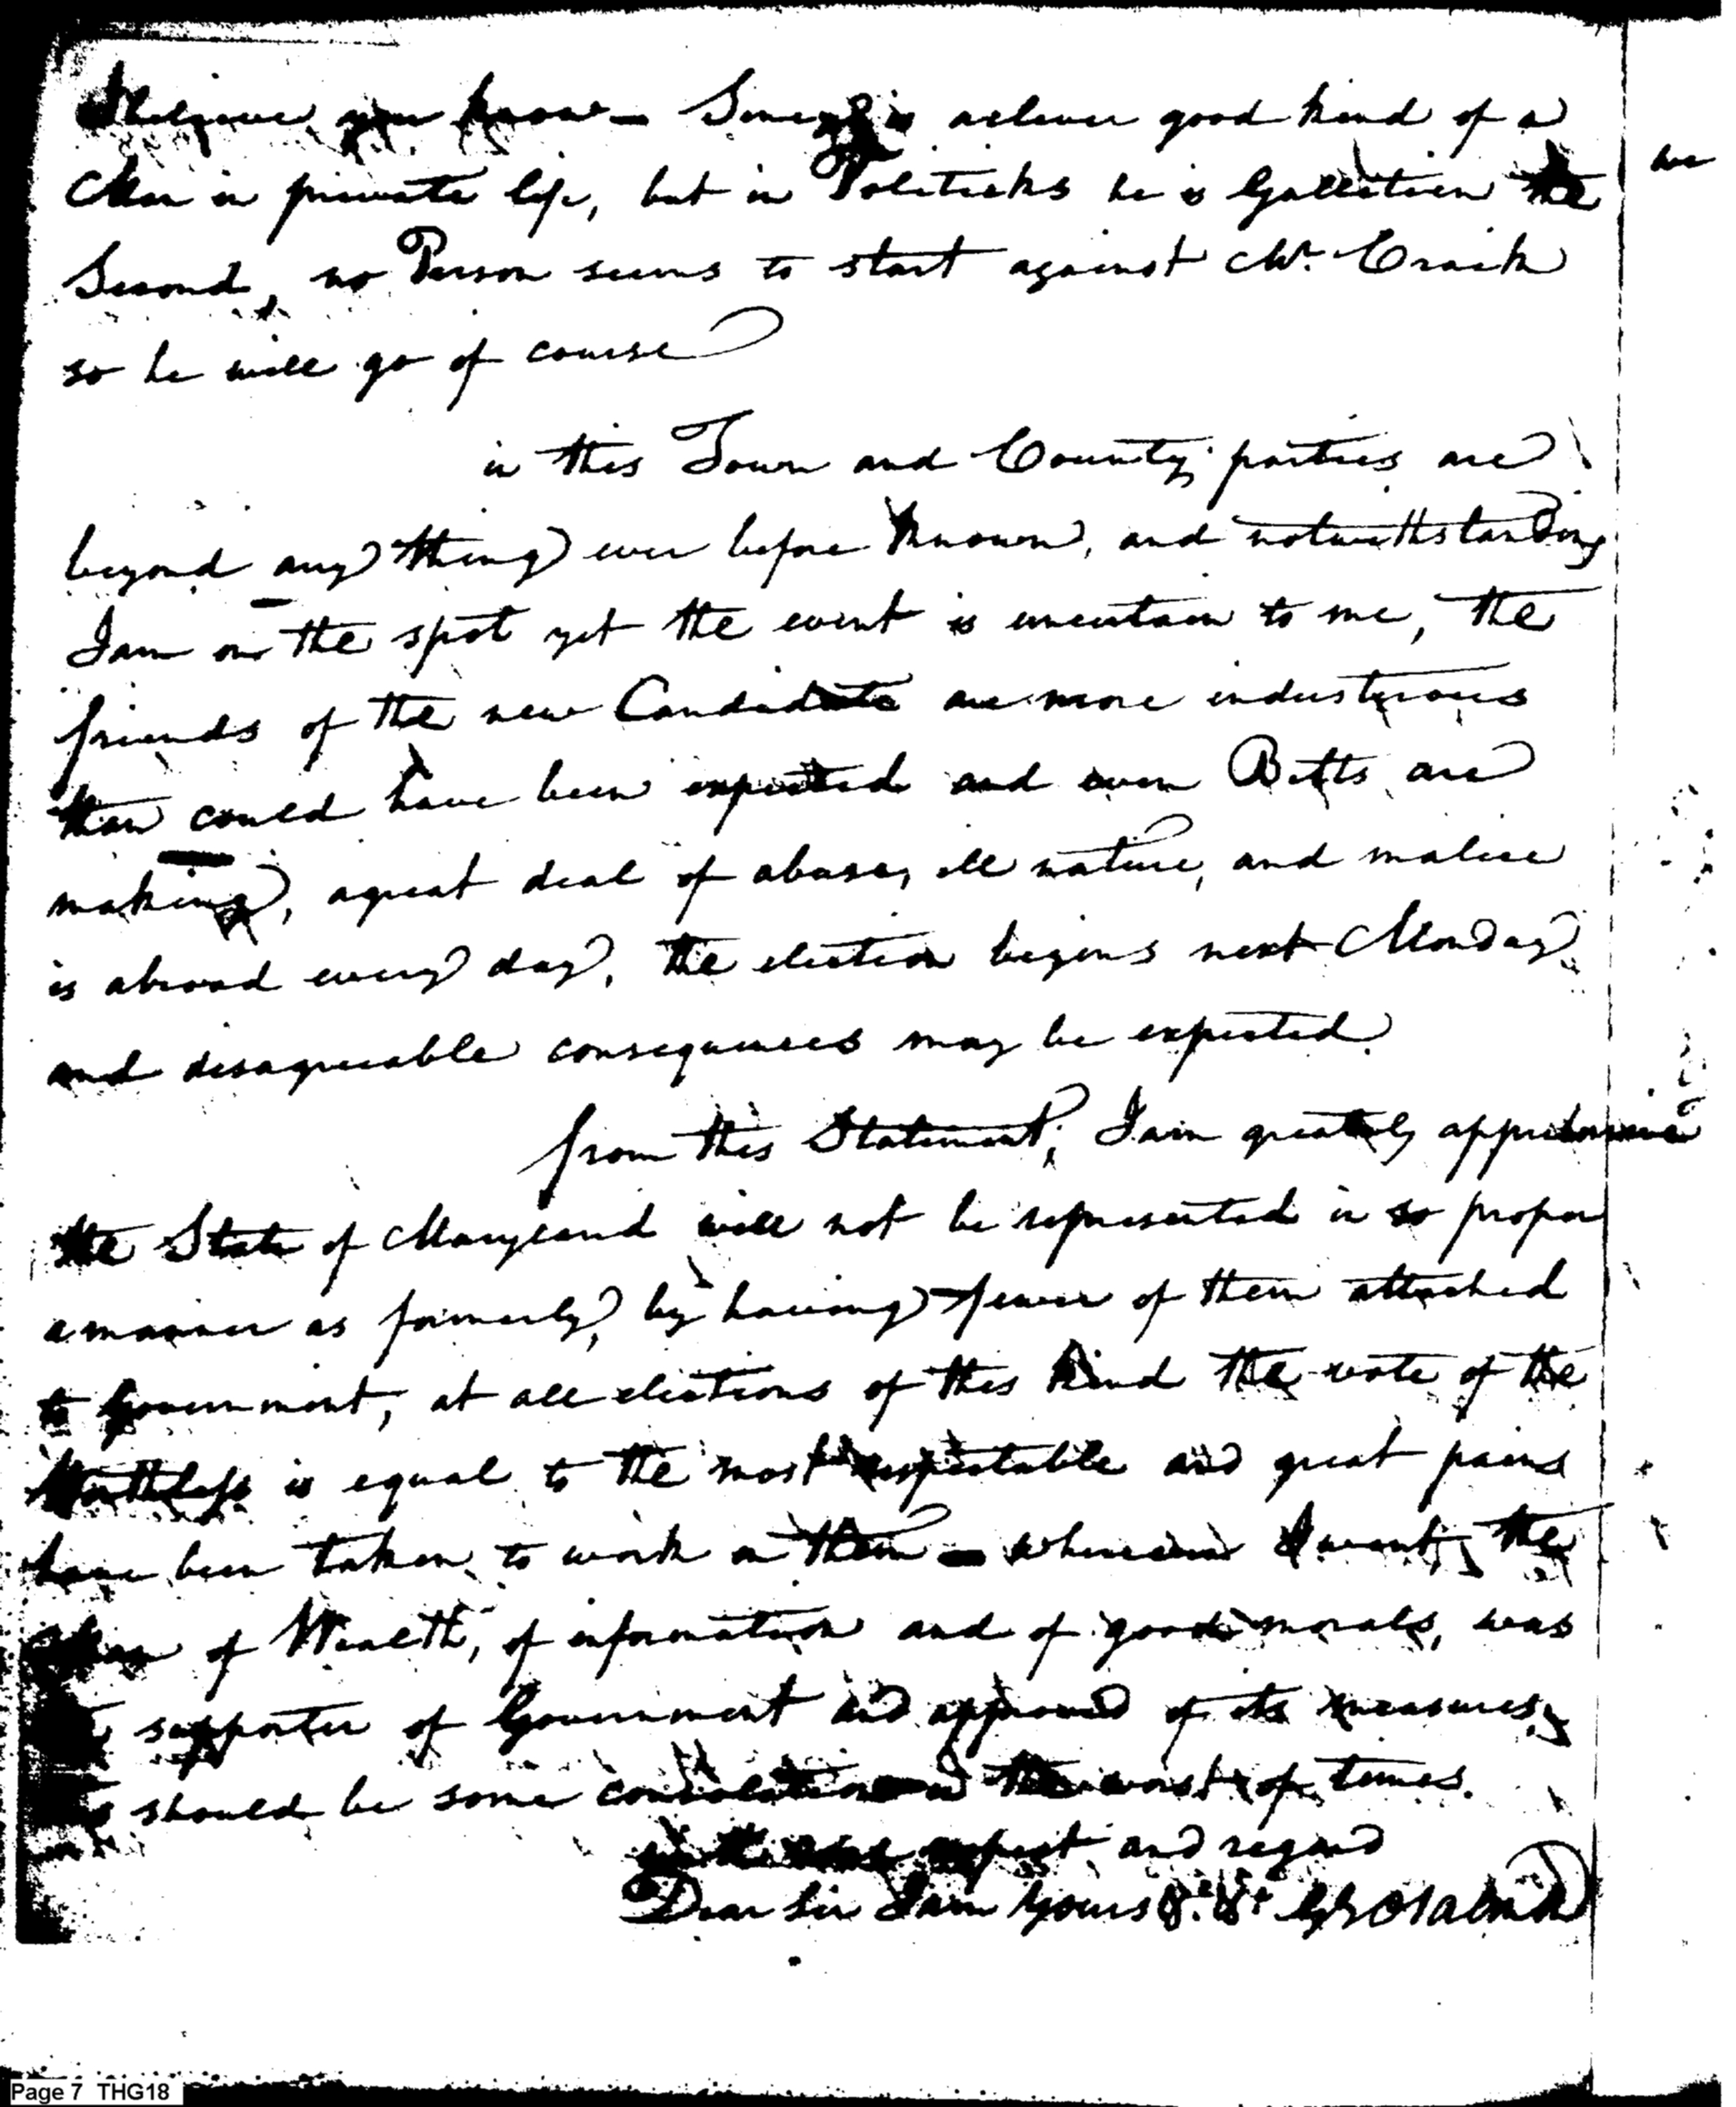 I believe you know — Simes is aclever good kind of a
Man in private life, but in Politicks he is Gallitien the
Second, no Person seems to start against Mr. Craik
so he will go of course
in this Town and County parties are
beyond any thing ever before known, and notwithstanding
I am on the spot yet the event is uncertain to me, the
friends of the new Candidate are more industerous
than could have been expected and even Betts are
making, agreat deal of abuse, ill nature, and malice
is abroad every day, the election begins next Monday
and disagreeable consequences may be expected.
from this Statement, I am greately apprehensive
the State of Maryland will not be represented in so proper
amanner as formerly, by having fewer of them attached
to Government, at all elections of this kind the vote of the
Worthless is equal to the most respectable and great pains
have been taken to work on them — wherever I went, the
Man of Wealth, of information and of good morals, was
supporter of Government and approved of its measures,
should be some consolation in the worst of times.
with respect and regard
Dear Sir I am Yours &c. &c.
we
Page 7 THG18